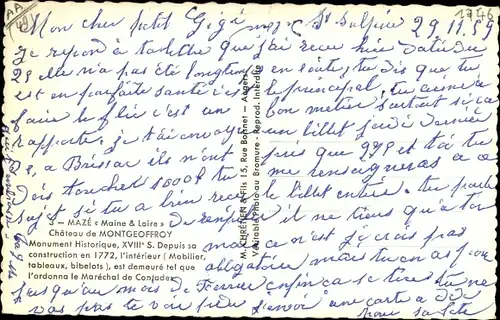 AA
49
1746
Mon cher petit Gigi mazé St Sulpice 29.11.59
Je repond à ta lettre que j'ai recu hier datée du
28 elle n'a pas été longtemps en route, tu dis que tu
est en parfaite santé c'est le principal, tu aimes à
faire le flic c'est un bon metier surtout si ça
rapporte, je t'ai envoyé un billet jeudi dernier
à Brissac ils n'ont pris que 295 et tu
dois toucher 1000f tu me renseigneras a ce
sujet si tu a bien recu le billet entier. tu parle
de rempli il ne tiens qu'a toi
mais ce n'est je crois pas
obligatoire mais
jusqu'au mois de Fevrier enfin ça se tirera tu ne
vas pas te voir j'envoi une carte a
pour sa fête
6 - MAZÉ « Maine & Loire »
Château de MONTGEOFFROY
Monument Historique, XVIIIe S. Depuis sa
construction en 1772, l'intérieur ( Mobilier,
tableaux, bibelots ), est demeuré tel que
l'ordonna le Maréchal de Contades.
M. CHRÉTIEN & Fils 15, Rue Bonnet — Angers
Véritable Photo au Bromure - Reprod. Interdite